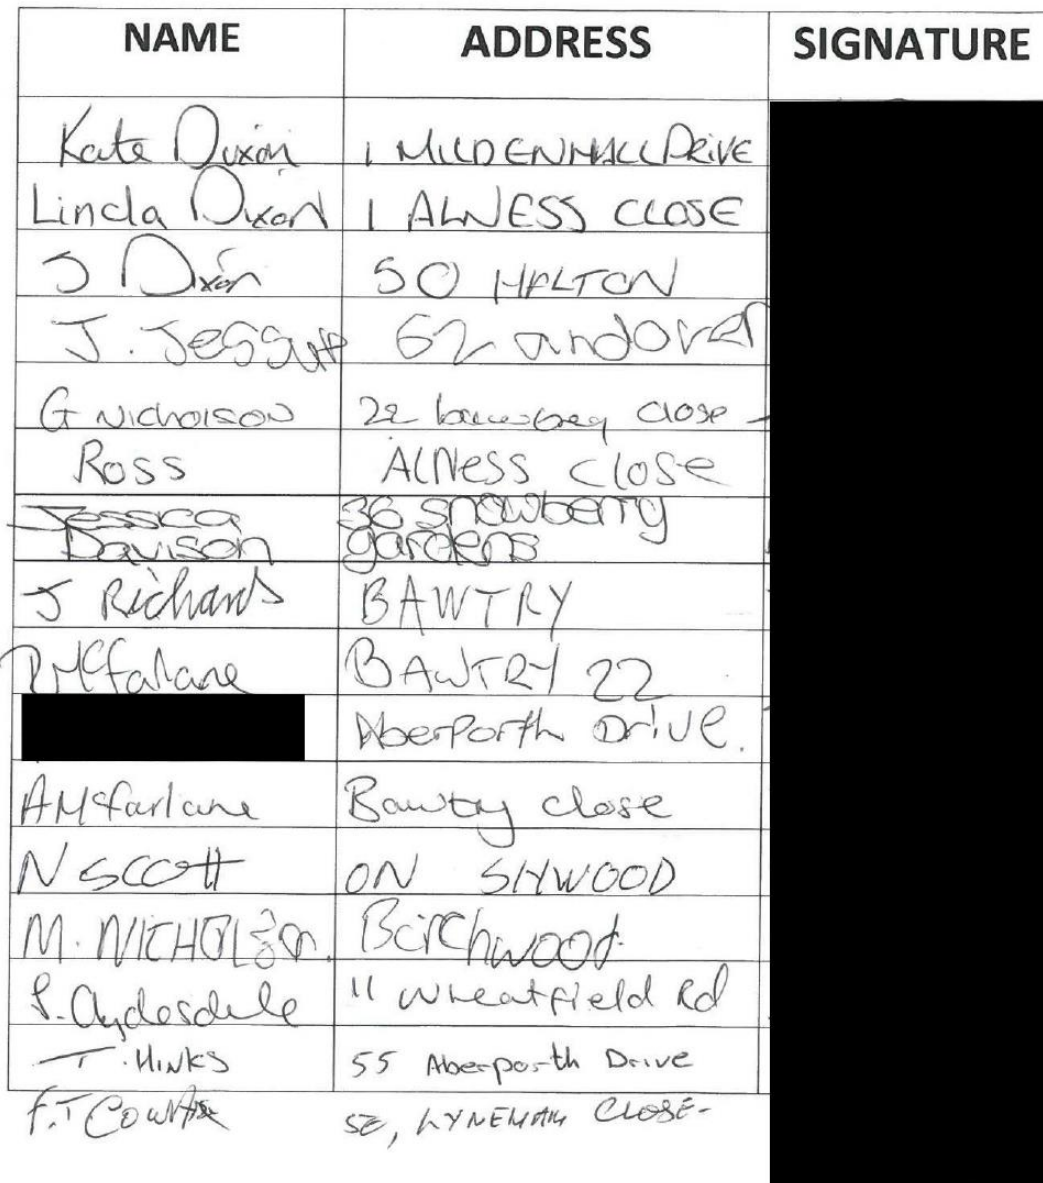 NAME ADDRESS SIGNATURE
Kate Dixon 1 MILDENHALL DRIVE
Linda Dixon 1 ALNESS CLOSE
J Dixon 50 HALTON
J. Jessup 62 andover
G Nicholson 22 close
Ross Alness close
Jessica 36 snowberry
Davison gardens
J Richards BAWTRY
McFalane BAWTRY 22
Aberporth Drive.
A McFarlane Bawtry close
N SCOTT ON
M. NICHOLSON. Birchwood
S. Clydesdale 11 Wheatfield Rd
T. HINKS 55 Aberporth Drive
F.T LYNEHAM CLOSE-